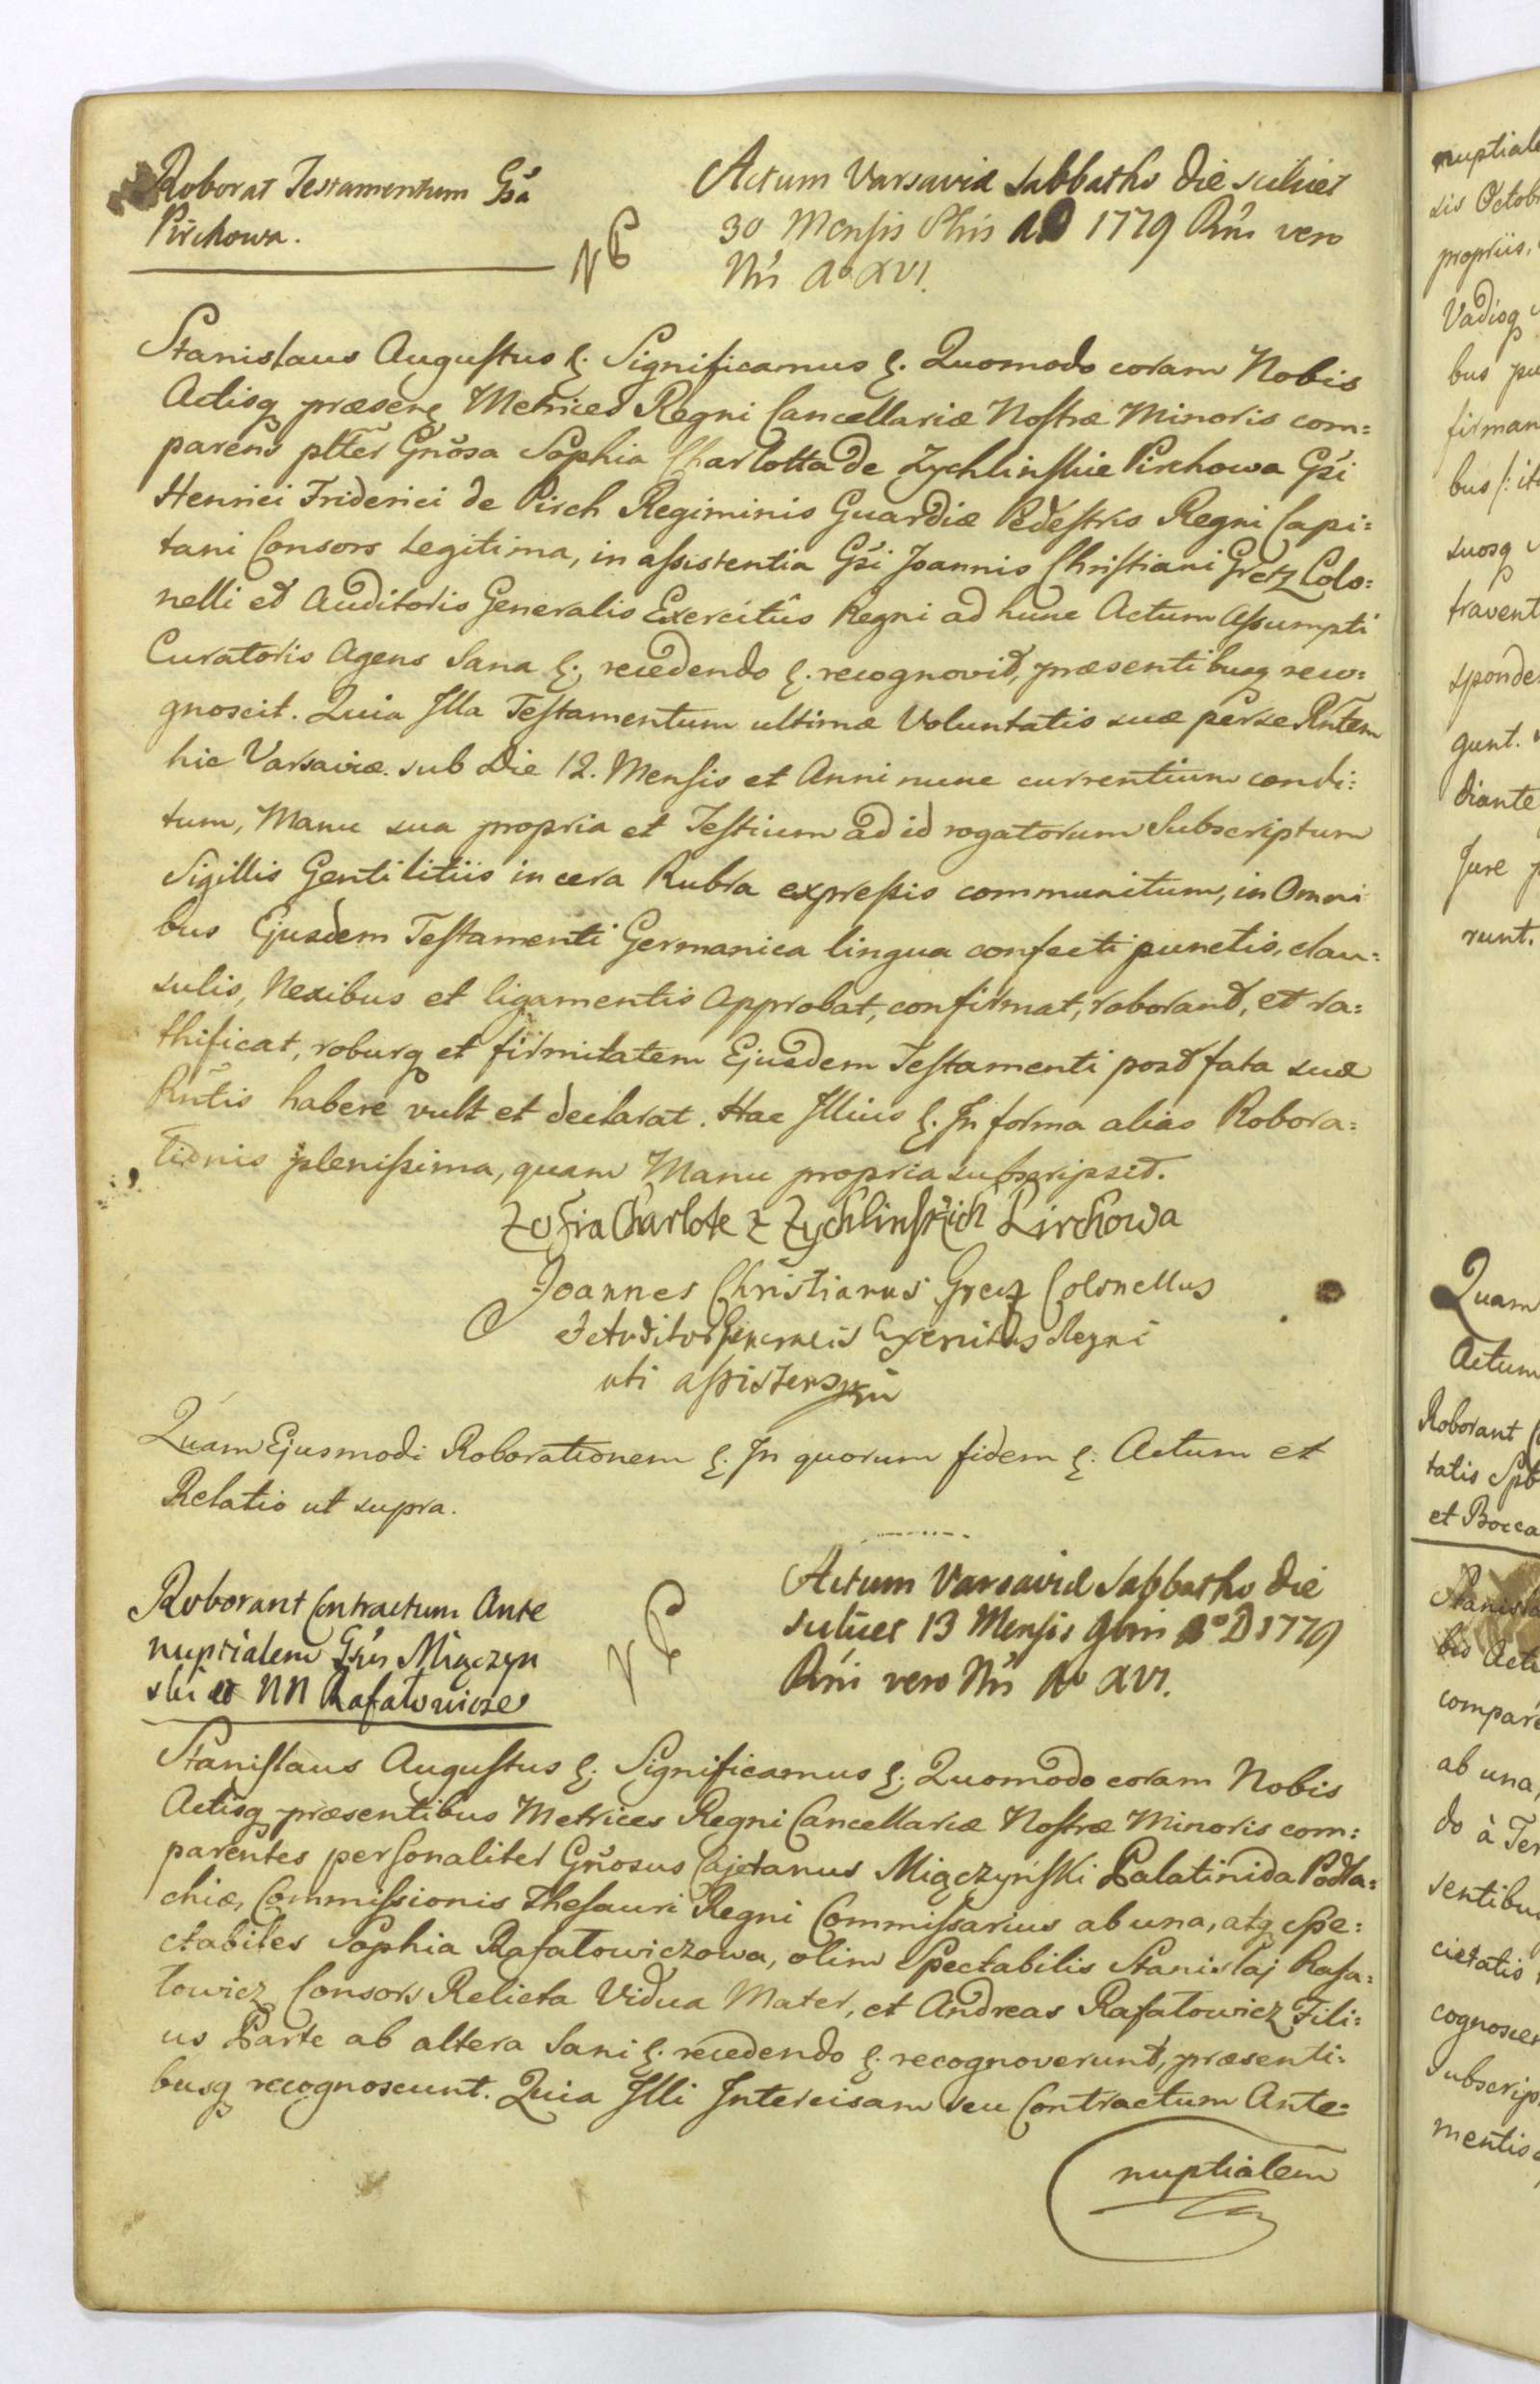 Roborat Testamentum Gsa
Pirchowa.
NB
Actum Varsaviæ Sabbatho Die scilicet
30 Mensis 8bris AD 1779 Rni vero
Nri Ao XVI.
Stanislaus Augustus &. Significamus &. Quomodo coram Nobis
Actisq præsen Metrices Regni Cancellariæ Nostræ Minoris com=
parens plter Gnosa Sophia Charlotta de Zychlinskie Pirchowa Gsi
Henrici Friderici de Pirch Regiminis Guardiæ Pedestris Regni Capi=
tani Consors Legitima, in assistentia Gsi Joannis Christiani Gretz Colo=
nelli et Auditoris Generalis Exercitûs Regni ad hunc Actum Assumpti
Curatoris Agens Sana &. recedendo &. recognovit, præsentibusq reco=
gnoscit. Quia Illa Testamentum ultimæ Voluntatis suæ per se Rntem
hic Varsaviæ sub Die 12. Mensis et Anni nunc currentium condi=
tum, Manu sua propria et Testium ad id rogatorum Subscriptum
Sigillis Gentilitiis in cera Rubra expressis communitum, in Omni
bus Ejusdem Testamenti Germanica lingua confecti punctis, clau=
sulis, Nexibus et ligamentis Approbat, confirmat, roborand, et ra=
thificat, roburq et firmitatem Ejusdem Testamenti post fata suæ
Rntis habere vult et declarat. Hac Illius &. In forma alias Robora=
tionis plenissima, quam Manu propria subscripsit.
Zofia Charlote z Zychlinskich Pirchowa
Joannes Christianus Gretz Colonellus
et Auditor Generalis Exercitus Regni
uti assistens
Quam Ejusmodi Roborationem &. In quorum fidem &. Actum et
Relatio ut supra.
Roborant Contractum Ante
nuptialem Gsus Miączyn
ski et NN Rafałowicze
NB
Actum Varsaviæ Sabbatho Die
scilicet 13 Mensis 9bris Ao D 1779
Rni vero Nri Ao XVI.
Stanislaus Augustus &. Significamus &. Quomodo coram Nobis
Actisq præsentibus Metrices Regni Cancellariæ Nostræ Minoris com=
parentes personaliter Gnosus Cajetanus Miączyński Palatinida Podla=
chiæ, Commissionis Thesauri Regni Commissarius ab una, atq Spe=
ctabiles Sophia Rafałowiczowa, olim Spectabilis Stanislaj Rafa=
łowicz Consors Relicta Vidua Mater, et Andreas Rafałowicz Fili=
us Parte ab altera Sani &. recedendo &. recognoverunt, præsenti=
busq recognoscunt. Quia Illi Intercisam seu Contractum Ante=
nuptialem
sis Octob
propriis,
Vadiisq
bus
firman
bus
suosq
travent
sponde
gunt.
diante
Jure
runt.
Quam
Actum
Roborant
tatis
et
Stanisla
compare
ab una,
do à Ter
sentibu
cietatis
cognoscen
subscrip
mentis